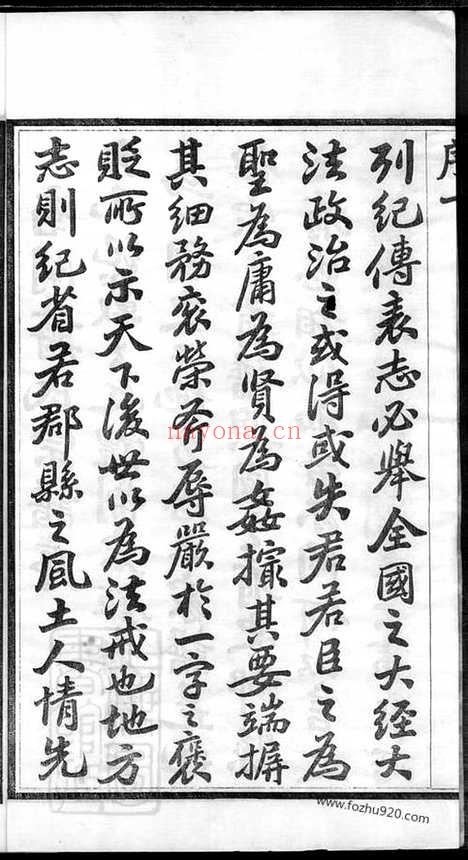 序一
列紀傳表志必舉全國之大經大
法政治之或得或失君若臣之為
聖為庸為賢為姦撮其要端摒
其細務袞榮斧辱嚴於一字之褒
貶所以示天下後世以為法戒也地方
志則紀省若郡縣之風土人情先
nayona.cn
www.fozhu920.com